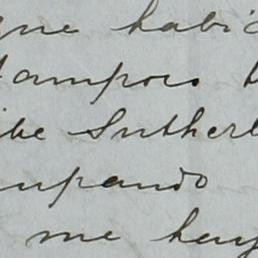 que habi
tampoco
ibe Sutherl
upando
me hay